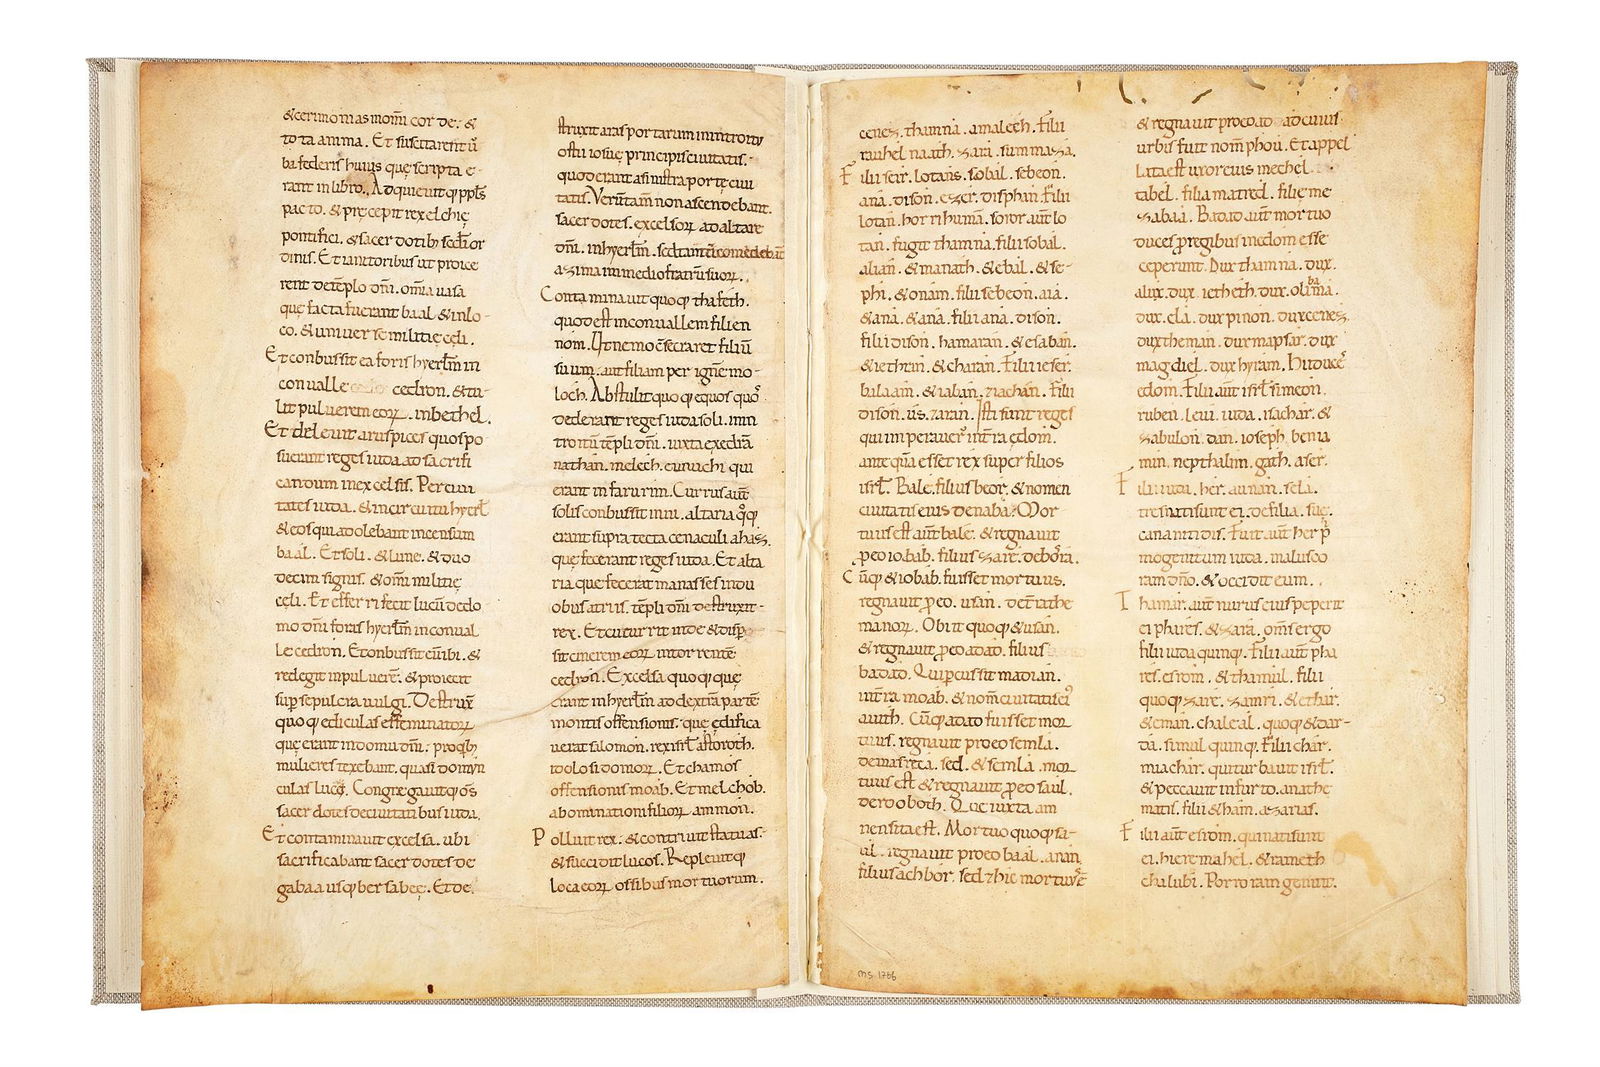 &cerimonias in om̅i cor de; &
to ta anima. Et suscitarent ū
ba federis huius quę scripta e
rant in libro., Adquieuit q; ppl̅s
pac to. & pręcepit rex elchię
pontifici. & sacer dotib; sc̅di or
dinis. Et ianitoribus ut proice
rent de tēplo dn̅i. om̅ia uasa
quę facta fuerant baal & in lo-
co. & uniuer se militię cęli.
Et conbussit ea foris hyerl̅m in
conualle cedron. & tu-
lit puluerem eorꝝ. in bethel.
Et deleuit aruspices quos po
suerant reges iuda ad sacrifi
candum in excelsis. Per ciui
tates iuda. & in circuitu hyerl̅
& eos qui adolebant incensum
baal. Et soli. & lune. & duo
decim signis. & om̅i militię
cęli. Et efferri fecit lucū de do
mo dn̅i foris hyerl̅m in conual
le cedron. Et conbussit eū ibi. &
redegit in puluerē. & proiecit
sup sepulcra uulgi. Destrux
quoq; ediculas effeminatorꝝ
quę erant in domu dn̅i. pro q̅b;
mulieres texebant. quasi domun
culas lucę. Congregauitq; om̅s
sacer dotes de ciuitatibus iuda.
Et contaminauit excelsa. ubi
sacrificabant sacer dotes de
gabaa usq; ber sabeę. Et de
struxit aras portarum in introitu
ostii iosue principis ciuitatis.
quod erat a sinistra portę ciui
tatis. Verūtam̅ non ascendebant.
sacer dotes. excelsorꝝ ad altare
dn̅i. in hyerl̅m. sed tantū comedebant
azima in medio fratrū suorꝝ.
Contaminauit quoq; thafeth.
quod est in conuallem filii en
nom. Ut nemo cōsecraret filiū
suum. aut filiam per ignē mo-
loch. Abstulit quoq; equos quos
dederant reges iuda soli. in in
troitū tēpli dn̅i. iuxta exedrā
nathan. melech. eunuchi qui
erant in farurim. Currus aūt
solis conbussit inni. altaria q̊q;
erant supra tecta cenaculi ahaz.
que fecerant reges iuda. Et alta
ria que fecerat manasses in du
obus atriis. tēpli dn̅i destruxit.
rex. Et cucurrit inde & disp̱
sit cinerem eorꝝ in torrentē
cedron. Excelsa quoq; quę
erant in hyerl̅m ad dextrā partē
montis offensionis. quę ędifica
uerat salomon. rex isrl̅ astoroth.
idolo sidomorꝝ. Et chamos
offensionis moab. Et melchob.
abominationi filiorꝝ ammon.
Polluit rex. & contriuit statuas.
& succidit lucos. Repleuitq;
loca eorꝝ ossibus mortuorum.
cenez. thamna. amalech. Filii
rauhel naath. zara. summaza.
Filii seir. lotans. sobal. sebeon.
ana. dison. ezer. disphan. Filii
lotan. horri humā. soror aūt lo
tan. fugit thamna. filii sobal.
alian. & manath. & ebal. & se-
phi. & onam. filii sebeon. aia.
& ana. & ana. Filii ana. dison.
filii dison. hamaran. & esaban.
& iethran. & charan. Filii ieser.
balaam. & iaban. ziachan. Filii
dison. us. zaran. Isti sunt reges
qui imperauer̅ in t̅ra ędom.
ante quā esset rex super filios
isrl̅. Bale. filius beor. & nomen
ciuitatis eius denaba. Mor-
tuus est aūt bale. & regnauit
ꝓ eo iobab. filius zare. de bosra.
Cūq; & iobab. fuisset mortuus.
regnauit ꝓ eo. usan. de t̅ra the
manorꝝ. Obiit quoq; & usan.
& regnauit ꝓ eo adad. filius
badad. Qui percussit madian.
in t̅ra moab. & nom̅ ciuitatis ei'
auith. Cūq; adad fuisset mor
tuus. regnauit pro eo semla.
de masreca. sed. & semla. mor
tuus est & regnauit ꝓ eo saul.
de rooboth. Que iuxta am
nem sita est. Mortuo quoq; sa-
ul. regnauit pro eo baal. anan
filius achbor. sed & hic mortuus ē
& regnauit pro eo adad cuius
urbis fuit nom̅ phou. Et appel
lata est uxor eius mechel
tabel. filia matred. filię me
zabaa. Badad aūt mortuo
duces ꝓ regibus in edom esse
ceperunt. Dux thamna. dux.
aliux. dux ietheth. dux. olibama.
dux. ela. dux pinon. dux cenez.
dux theman. dux mapsar. dux
magdiel. dux hyram. Hi duces
edom. Filii aūt isrl̅. simeon.
ruben. leui. iuda. isachar. &
zabulon. dan. ioseph. benia
min. nepthalim. gath. aser.
Filii iuda. her. aunan. sela.
tres nati sunt ei. de filia. sue.
cananitidis. Fuit aūt her p̱
mogenitum iuda. malus co
ram dn̅o. & occidit eum.
Thamar. aūt nurus eius peperit
ei phares. & zara. om̅s ergo
filii iuda quinq;. Filii aūt pha
res. esrom. & thamul. filii
quoq; zare. zamri. & ethar.
& eman. chalcal. quoq; & dar-
da. simul quinq;. Filii char.
mia char. qui turbauit isrl̅.
& peccauit in furto. anathe
matis. filii & ham. azarias.
Filii aūt esrom. qui nati sunt
ei. hieremahel. & rameth
chalubi. Porro ram genuit.
ms 1756